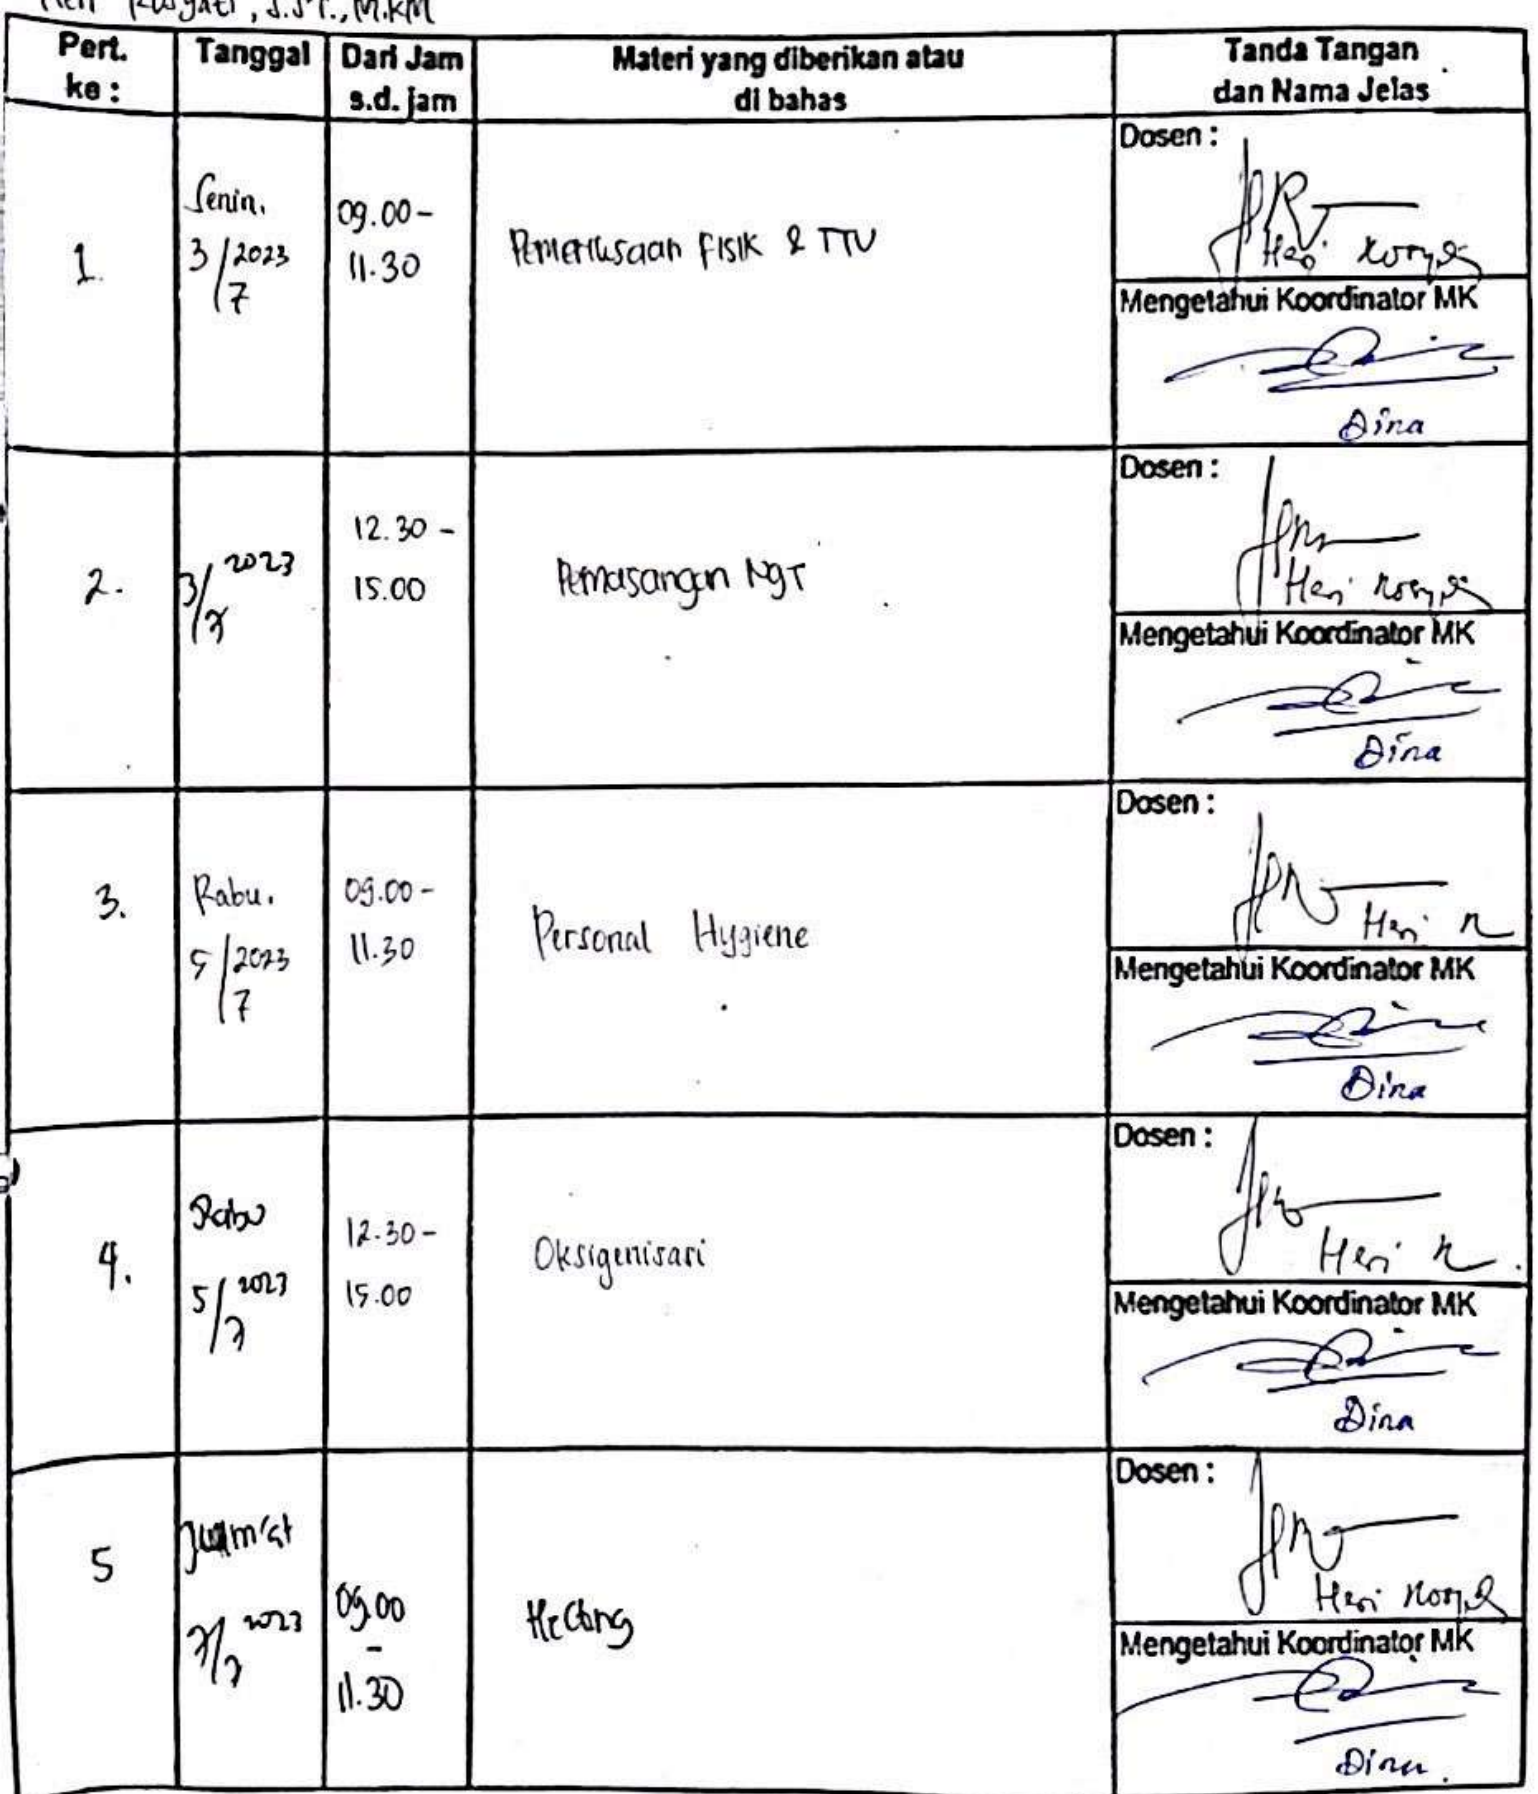 Heri Rosyati, S.ST., M.KM
Pert. ke :
Tanggal
Dari Jam s.d. jam
Materi yang diberikan atau di bahas
Tanda Tangan dan Nama Jelas
1.
Senin.
3/7 2023
09.00 -
11.30
Pemeriksaan Fisik & TTV
Dosen :
Heri Rosyati
Mengetahui Koordinator MK
Dina
2.
3/7 2023
12.30 -
15.00
Pemasangan NGT
Dosen :
Heri Rosyati
Mengetahui Koordinator MK
Dina
3.
Rabu.
5/7 2023
09.00 -
11.30
Personal Hygiene
Dosen :
Heri R
Mengetahui Koordinator MK
Dina
4.
Rabu
5/7 2023
12.30 -
15.00
Oksigenisasi
Dosen :
Heri R.
Mengetahui Koordinator MK
Dina
5
Jum'at
7/7 2023
09.00
-
11.30
Hecting
Dosen :
Heri Rosyati
Mengetahui Koordinator MK
Dina.